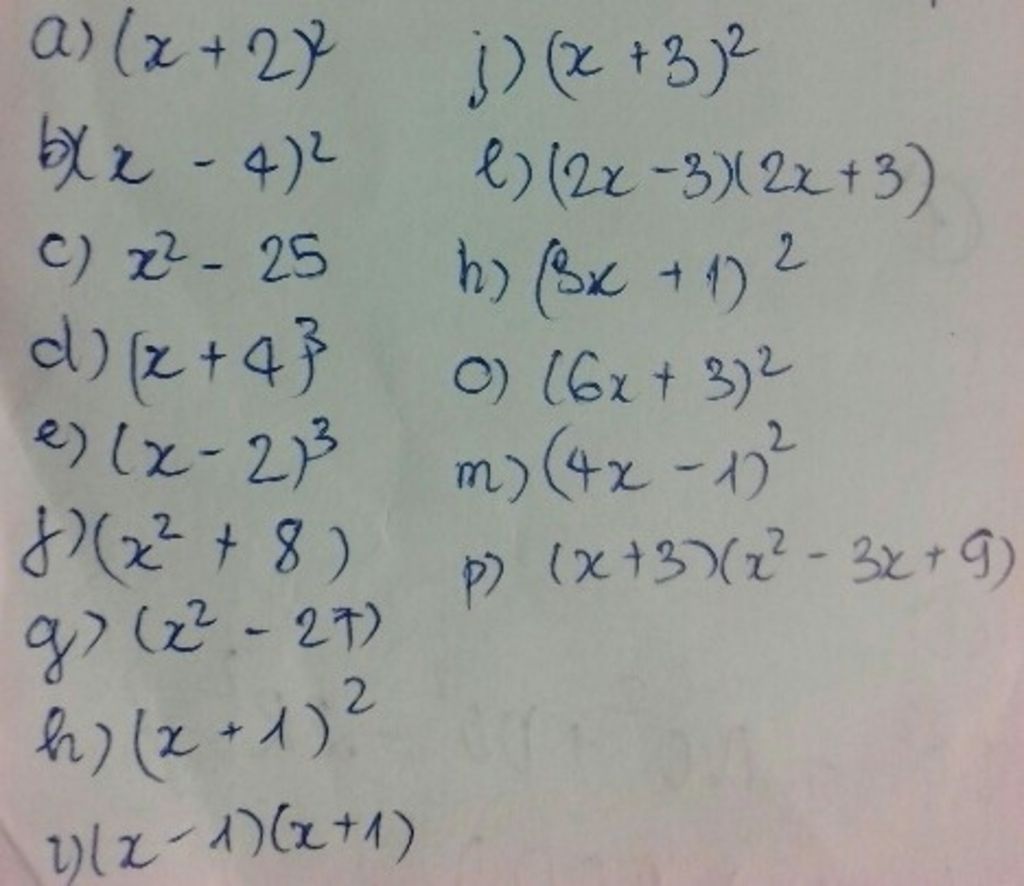 a) (x + 2)²
b) (x - 4)²
c) x² - 25
d) (x + 4)³
e) (x - 2)³
f) (x² + 8)
g) (x² - 27)
h) (x + 1)²
i) (x - 1)(x + 1)
j) (x + 3)²
l) (2x - 3)(2x + 3)
h) (3x + 1)²
o) (6x + 3)²
m) (4x - 1)²
p) (x + 3)(x² - 3x + 9)